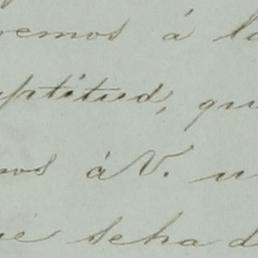 remos á l
ptitud, qu
os á V. u
é se ha d